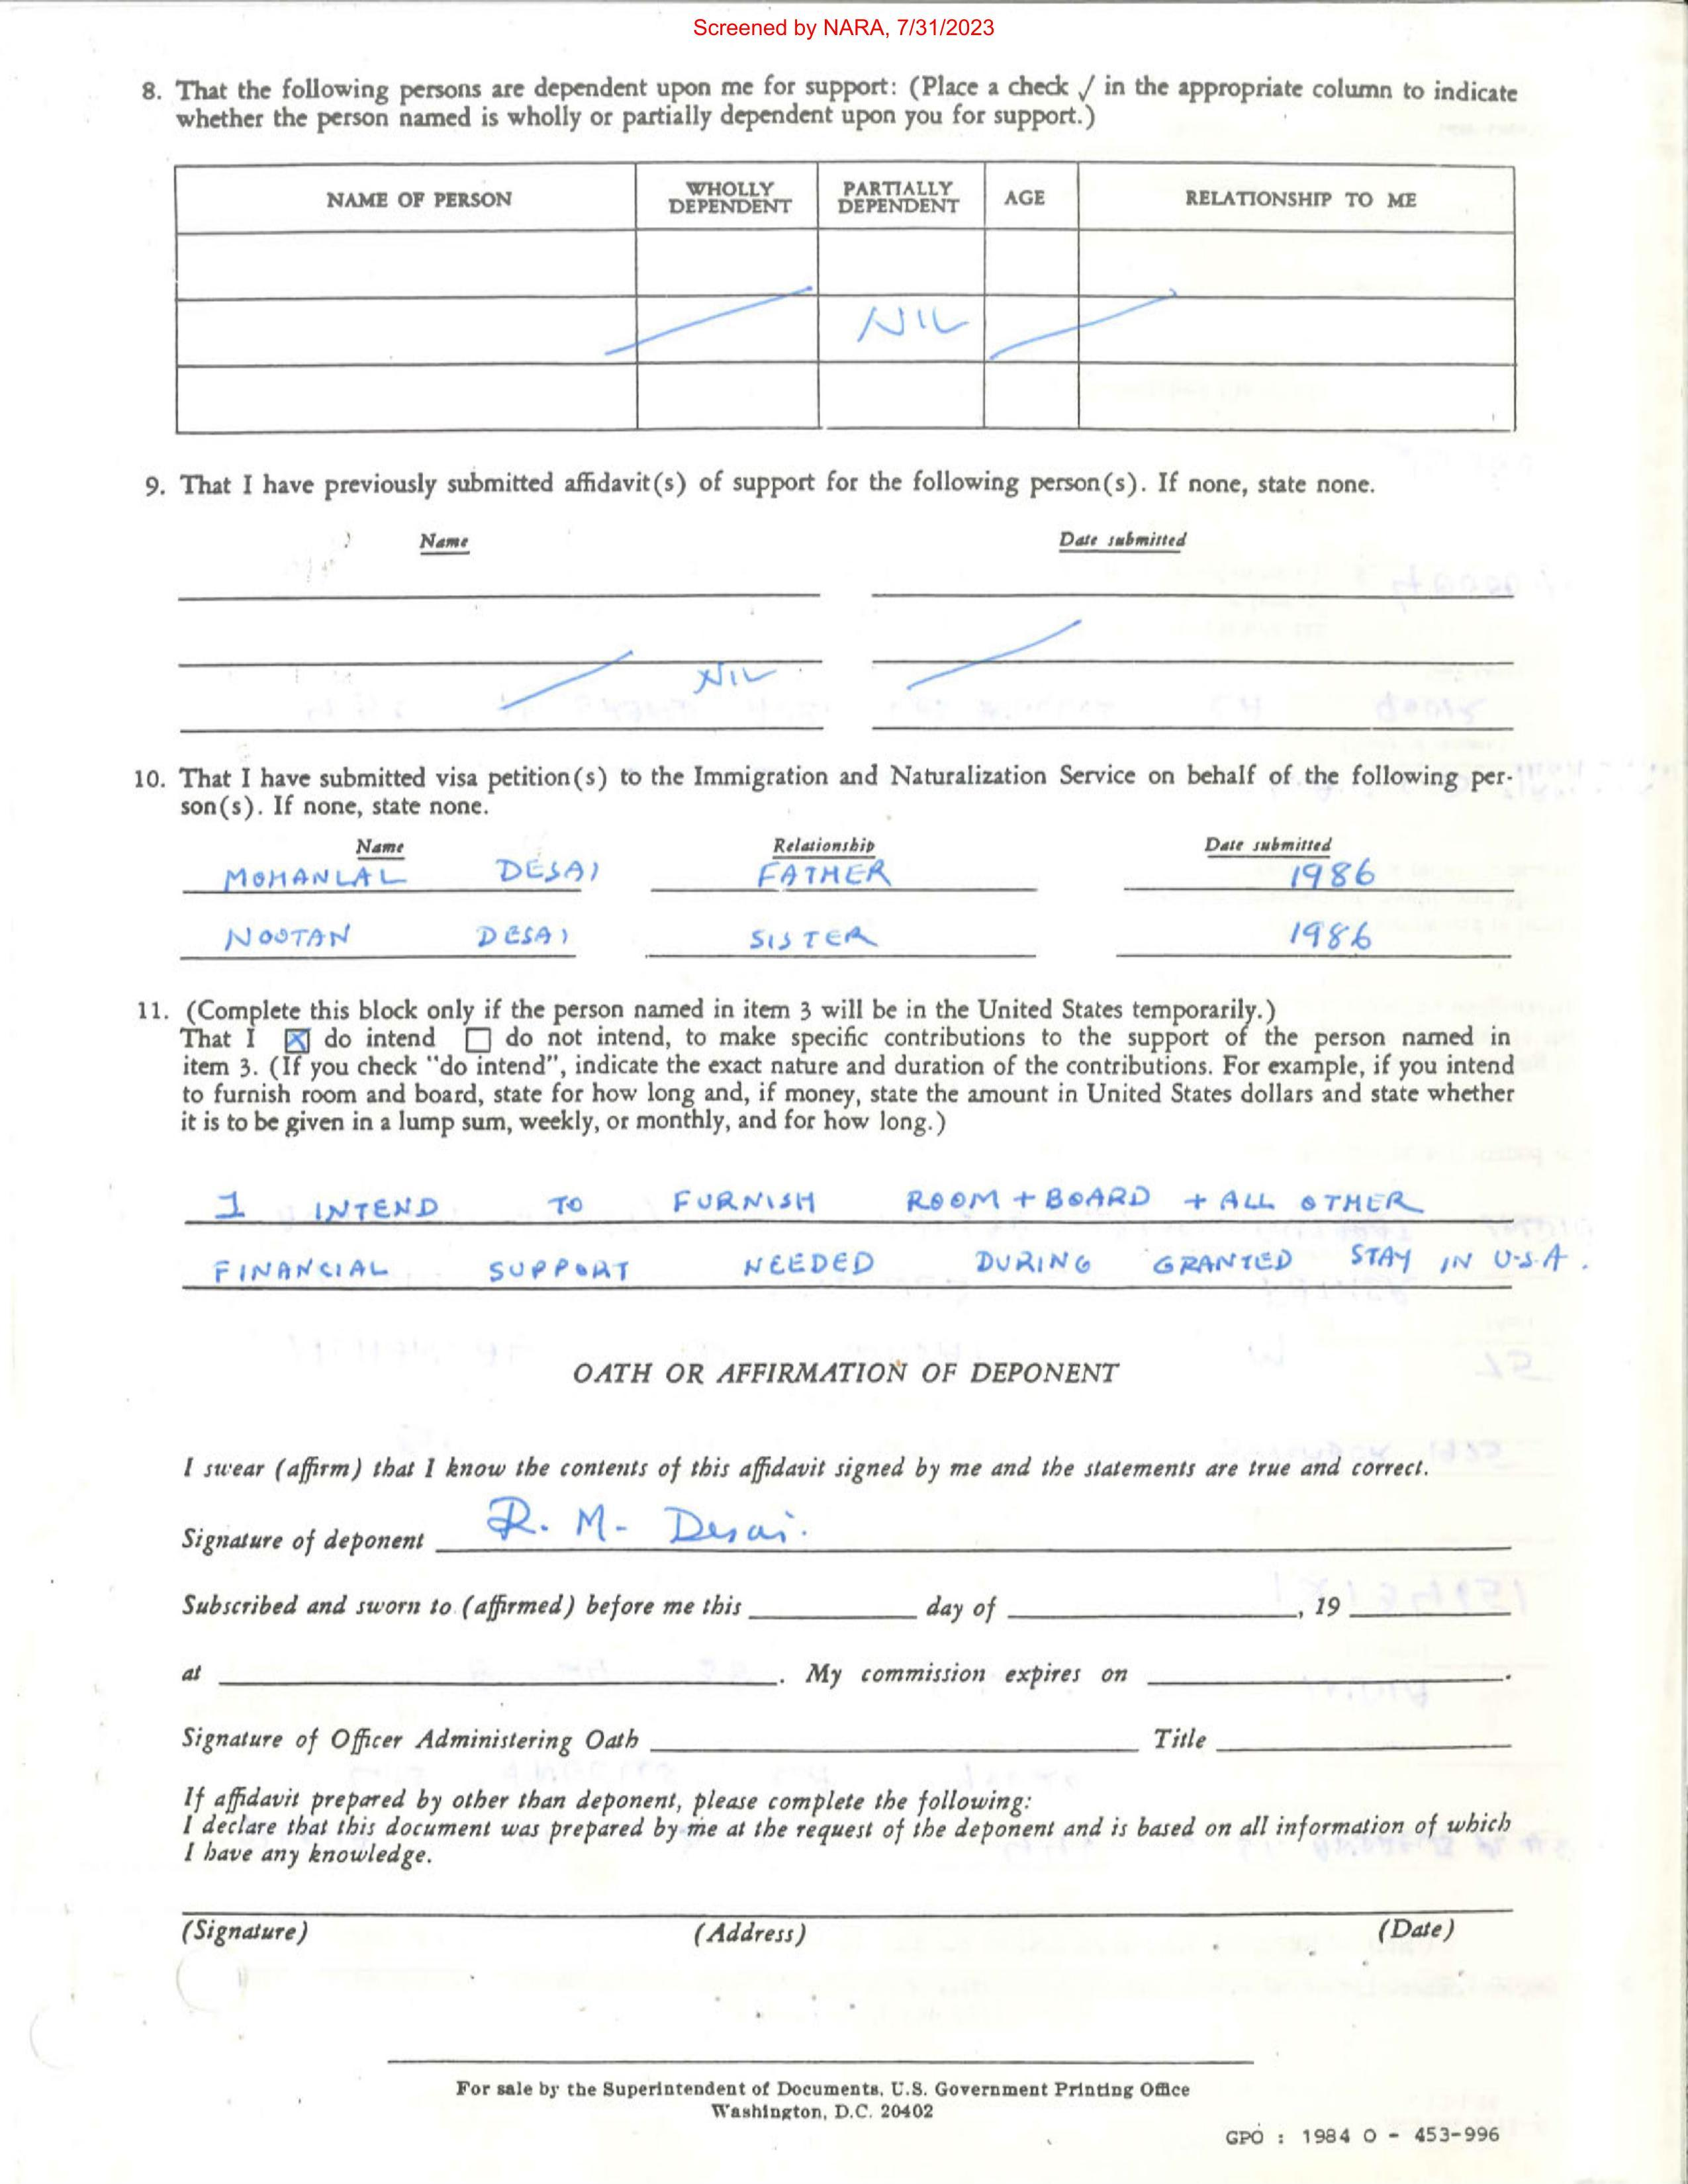 Screened by NARA, 7/31/2023
8. That the following persons are dependent upon me for support: (Place a check / in the appropriate column to indicate
whether the person named is wholly or partially dependent upon you for support.)
NAME OF PERSON WHOLLY DEPENDENT PARTIALLY DEPENDENT AGE RELATIONSHIP TO ME
NIL
9. That I have previously submitted affidavit(s) of support for the following person(s). If none, state none.
Name Date submitted
NIL
10. That I have submitted visa petition(s) to the Immigration and Naturalization Service on behalf of the following per-
son(s). If none, state none.
Name Relationship Date submitted
MOHANLAL DESAI FATHER 1986
NOOTAN DESAI SISTER 1986
11. (Complete this block only if the person named in item 3 will be in the United States temporarily.)
That I ☒ do intend ☐ do not intend, to make specific contributions to the support of the person named in
item 3. (If you check "do intend", indicate the exact nature and duration of the contributions. For example, if you intend
to furnish room and board, state for how long and, if money, state the amount in United States dollars and state whether
it is to be given in a lump sum, weekly, or monthly, and for how long.)
I INTEND TO FURNISH ROOM + BOARD + ALL OTHER
FINANCIAL SUPPORT NEEDED DURING GRANTED STAY IN U.S.A.
OATH OR AFFIRMATION OF DEPONENT
I swear (affirm) that I know the contents of this affidavit signed by me and the statements are true and correct.
Signature of deponent R. M. Desai.
Subscribed and sworn to (affirmed) before me this day of , 19
at . My commission expires on .
Signature of Officer Administering Oath Title
If affidavit prepared by other than deponent, please complete the following:
I declare that this document was prepared by me at the request of the deponent and is based on all information of which
I have any knowledge.
(Signature) (Address) (Date)
For sale by the Superintendent of Documents, U.S. Government Printing Office
Washington, D.C. 20402
GPO : 1984 O - 453-996